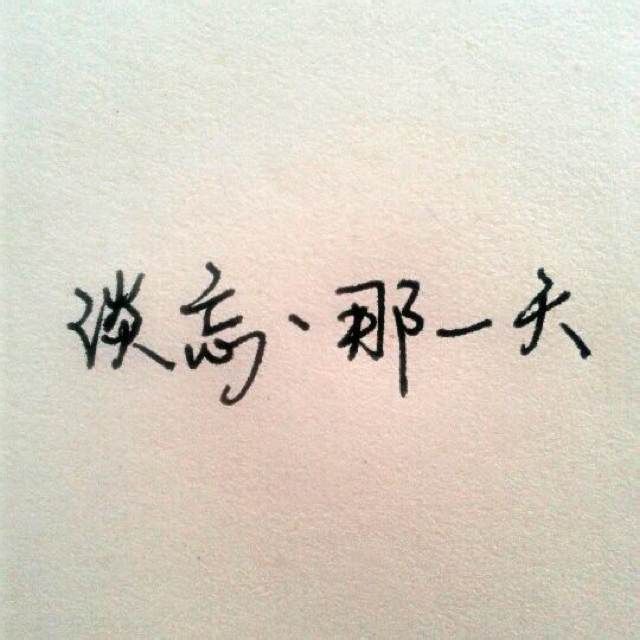 谈忘、那一天